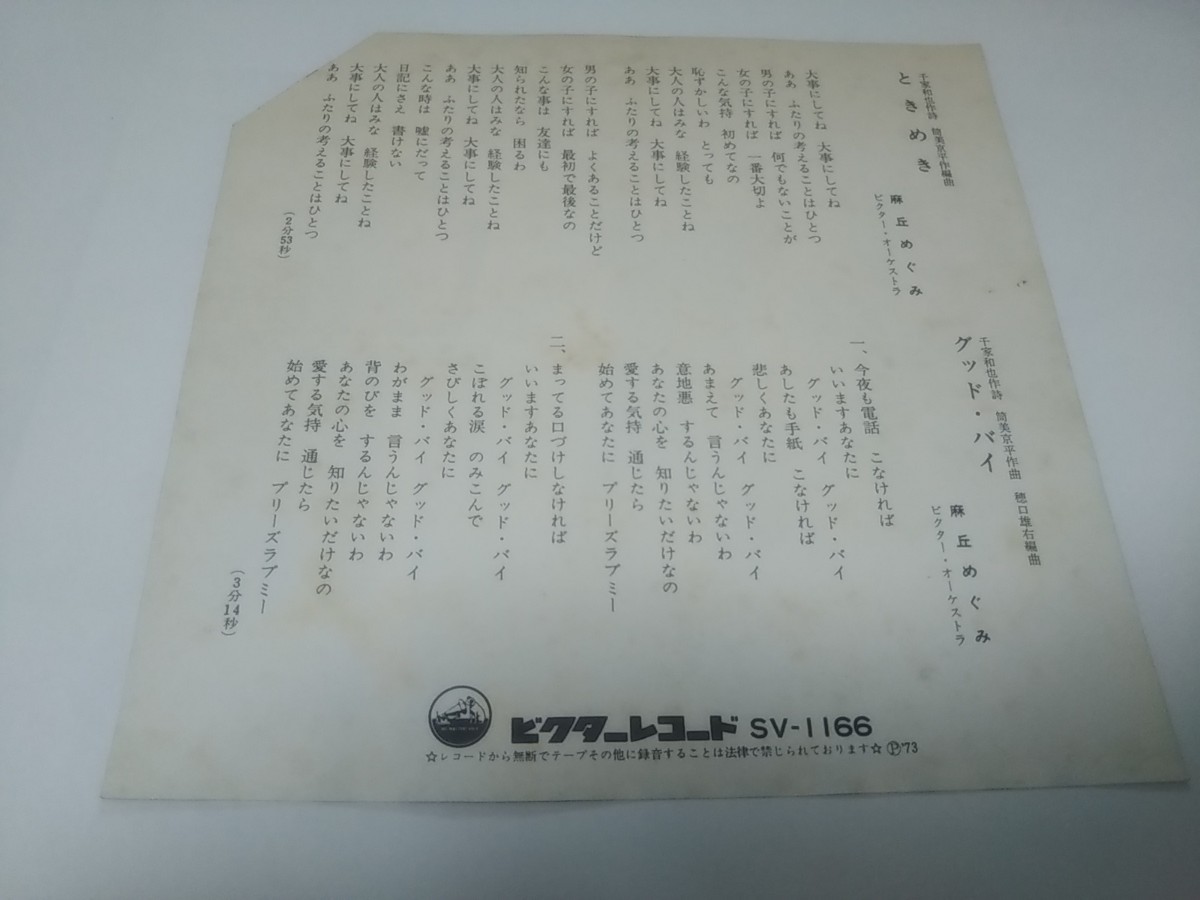 ときめき
千家和也作詩　筒美京平作編曲
麻丘めぐみ
ビクター・オーケストラ
大事にしてね　大事にしてね
ああ　ふたりの考えることはひとつ
男の子にすれば　何でもないことが
女の子にすれば　一番大切よ
こんな気持　初めてなの
恥ずかしいわ　とっても
大人の人はみな　経験したことね
大事にしてね　大事にしてね
ああ　ふたりの考えることはひとつ
男の子にすれば　よくあることだけど
女の子にすれば　最初で最後なの
こんな事は　友達にも
知られたなら　困るわ
大人の人はみな　経験したことね
大事にしてね　大事にしてね
ああ　ふたりの考えることはひとつ
こんな時は　嘘にだって
日記にさえ　書けない
大人の人はみな　経験したことね
大事にしてね　大事にしてね
ああ　ふたりの考えることはひとつ
(2分53秒)
グッド・バイ
千家和也作詩　筒美京平作曲　穂口雄右編曲
麻丘めぐみ
ビクター・オーケストラ
一、今夜も電話　こなければ
いいますあなたに
グッド・バイ　グッド・バイ
あしたも手紙　こなければ
悲しくあなたに
グッド・バイ　グッド・バイ
あまえて　言うんじゃないわ
意地悪　するんじゃないわ
あなたの心を　知りたいだけなの
愛する気持　通じたら
始めてあなたに　プリーズラブミー
二、まってる口づけしなければ
いいますあなたに
グッド・バイ　グッド・バイ
こぼれる涙　のみこんで
さびしくあなたに
グッド・バイ　グッド・バイ
わがまま　言うんじゃないわ
背のびを　するんじゃないわ
あなたの心を　知りたいだけなの
愛する気持　通じたら
始めてあなたに　プリーズラブミー
(3分14秒)
ビクターレコード SV-1166
☆レコードから無断でテープその他に録音することは法律で禁じられております☆ Ⓟ'73